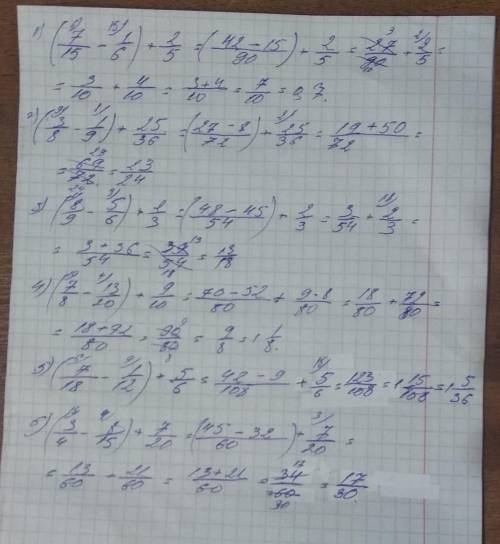 1) (7/15 - 1/6) + 2/5 = (42 - 15 / 90) + 2/5 = 27/90 + 2/5 =
= 3/10 + 4/10 = 3+4/10 = 7/10 = 0,7.
2) (3/8 - 1/9) + 25/36 = (27 - 8 / 72) + 25/36 = 19 + 50 / 72 =
= 69/72 = 23/24
3) (8/9 - 5/6) + 2/3 = (48 - 45 / 54) + 2/3 = 3/54 + 2/3 =
= 3 + 36 / 54 = 39/54 = 13/18
4) (7/8 - 13/20) + 9/10 = 70 - 52 / 80 + 9·8/80 = 18/80 + 72/80 =
= 18 + 72 / 80 = 90/80 = 9/8 = 1 1/8.
5) (7/18 - 1/12) + 5/6 = 42 - 9 / 108 + 5/6 = 123/108 = 1 15/108 = 1 5/36
6) (3/4 - 8/15) + 7/20 = (45 - 32 / 60) + 7/20 =
= 13/60 + 21/60 = 13 + 21 / 60 = 34/60 = 17/30.